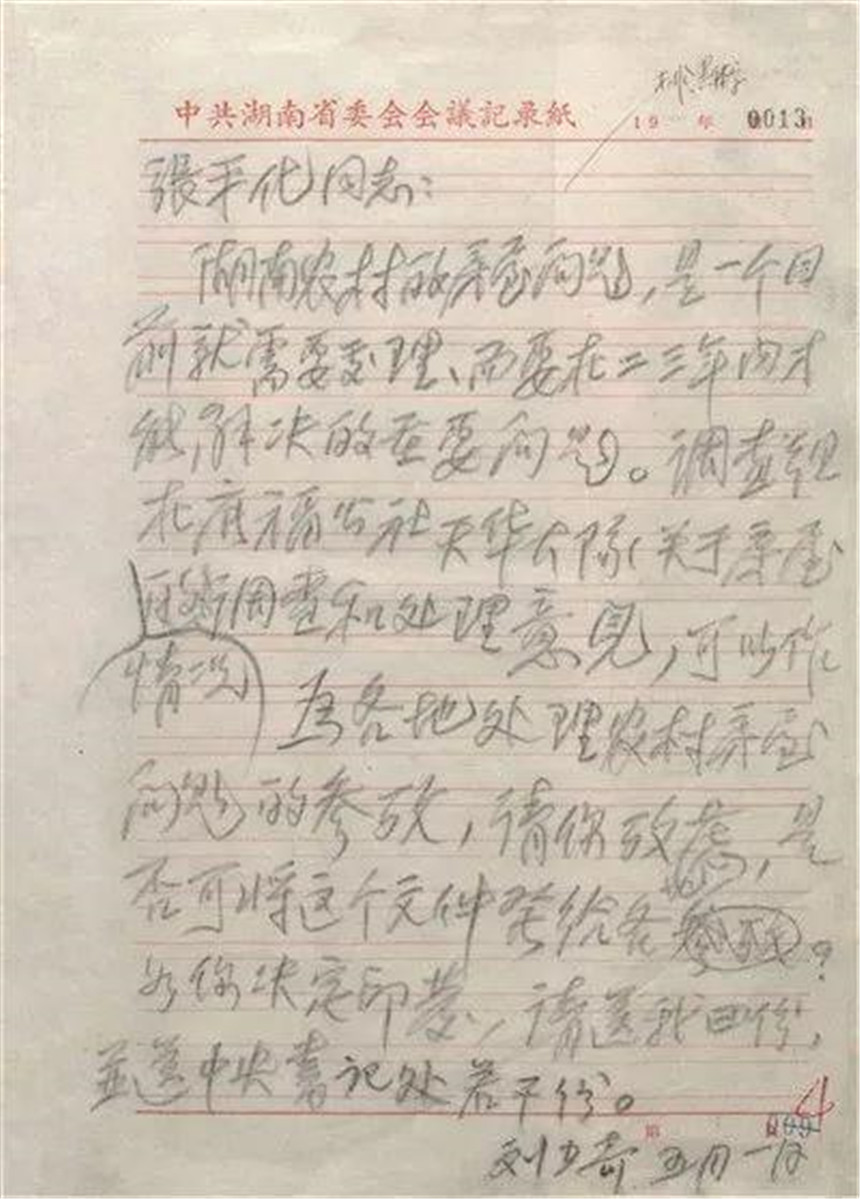 中共湖南省委会会議記录紙 19 年 0013
張平化同志：
湖南农村的房屋问题，是一个目
前就需要处理、而要在二三年内才
能解决的重要问题。调查组
在广福公社天华大队关于房屋
调查和处理意见，可以作
情况
为各地处理农村房屋
问题的参攷，请你攷虑，是
否可将这个文件发给各
？
如你决定印发，请送我四份，
並送中央書记处若干份。
第
刘少奇 五月一日